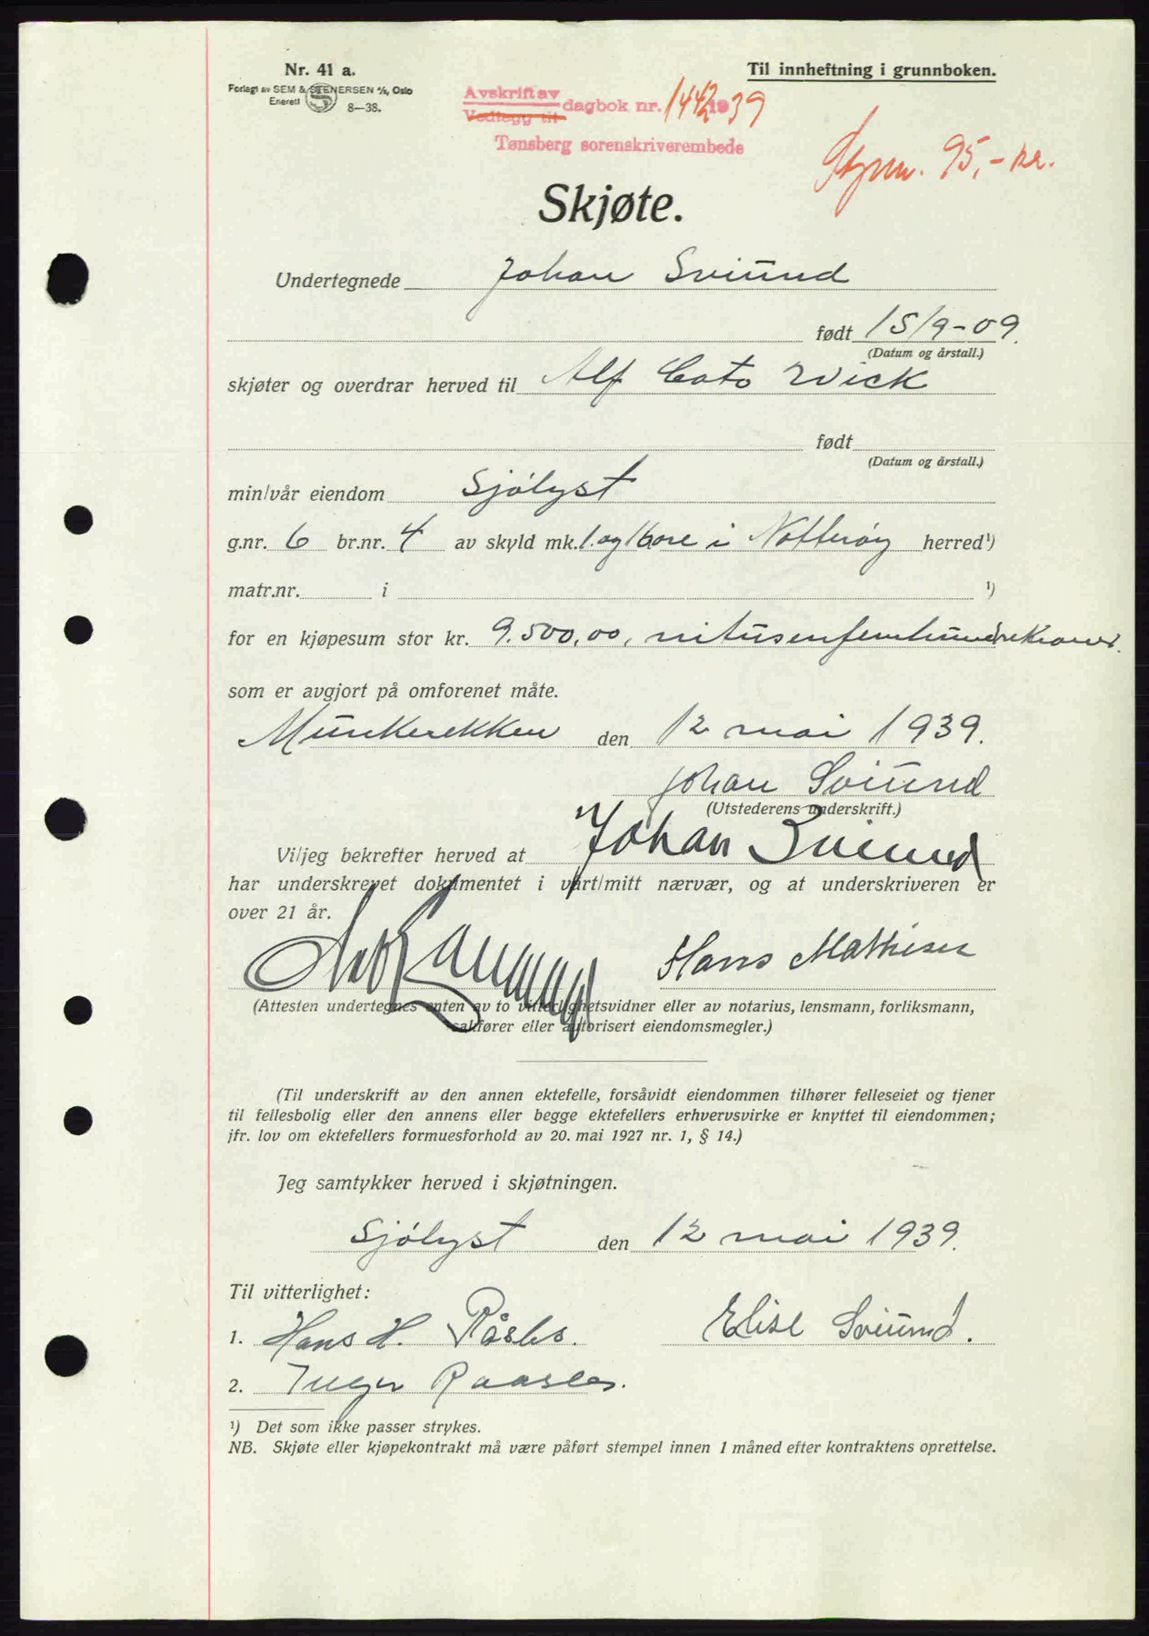 Nr. 41 a.
Forlagt av SEM & STENERSEN A/S, Oslo
Enerett 8—38.
Til innheftning i grunnboken.
Avskrift av
Vedlegg til dagbok nr. 1442 1939
Tønsberg sorenskriverembede
95,- kr.
Skjøte.
Undertegnede Johan Sviund
født 15/9-09.
(Datum og årstall.)
skjøter og overdrar herved til Alf Cato Wick
født
(Datum og årstall.)
min/vår eiendom Sjölyst
g.nr. 6 br.nr. 4 av skyld mk. 1. og 16 øre i Nøtterøy herred¹)
matr.nr. i ¹)
for en kjøpesum stor kr. 9.500,00, nitusenfemhundrekroner.
som er avgjort på omforenet måte.
Munkerekken den 12 mai 1939.
Johan Sviund
(Utstederens underskrift.)
Vi/jeg bekrefter herved at Johan Sviund
har underskrevet dokumentet i vårt/mitt nærvær, og at underskriveren er
over 21 år.
Hans Mathisen
(Attesten undertegnes enten av to vitterlighetsvidner eller av notarius, lensmann, forliksmann,
sakfører eller autorisert eiendomsmegler.)
(Til underskrift av den annen ektefelle, forsåvidt eiendommen tilhører felleseiet og tjener
til fellesbolig eller den annens eller begge ektefellers erhvervsvirke er knyttet til eiendommen;
jfr. lov om ektefellers formuesforhold av 20. mai 1927 nr. 1, § 14.)
Jeg samtykker herved i skjøtningen.
Sjölyst den 12 mai 1939.
Til vitterlighet:
1. Hans H. Råsles. Elise Sviund.
2. Inger Raasles.
¹) Det som ikke passer strykes.
NB. Skjøte eller kjøpekontrakt må være påført stempel innen 1 måned efter kontraktens oprettelse.